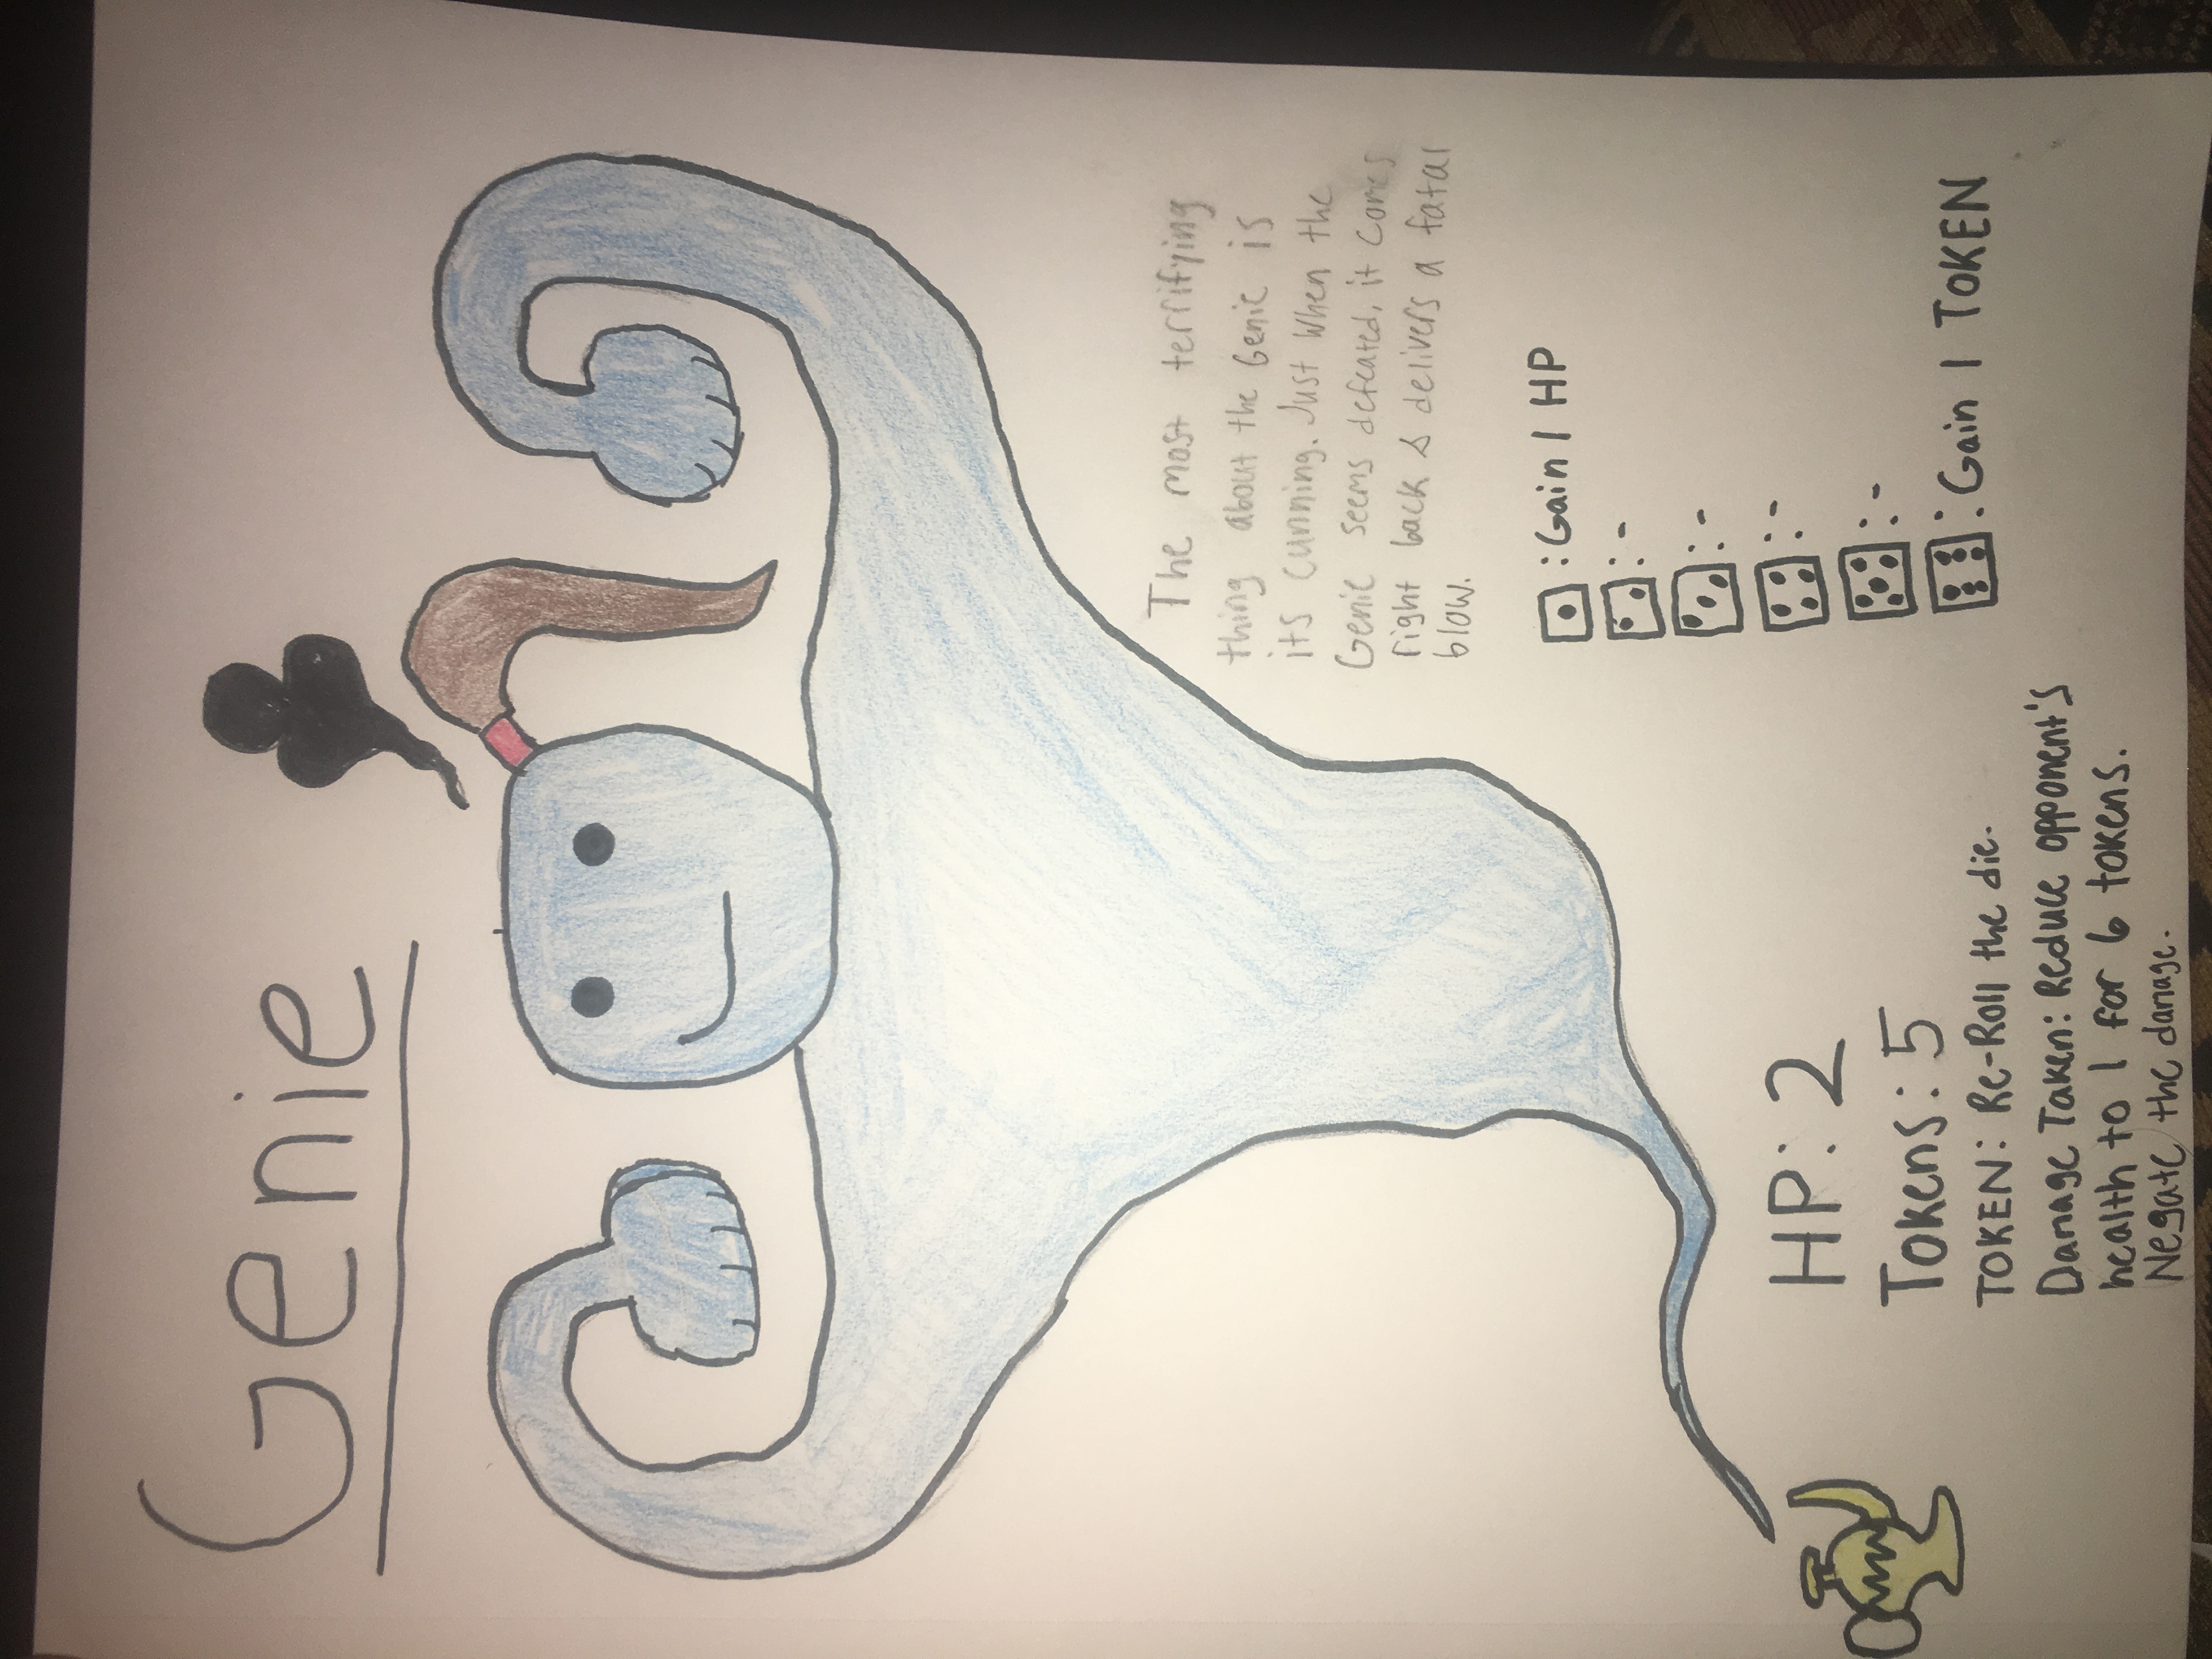 Genie
The most terrifying
thing about the Genie is
its cunning. Just when the
Genie seems defeated, it comes
right back & delivers a fatal
blow.
: Gain 1 HP
: -
: -
: -
: -
: Gain 1 TOKEN
HP: 2
Tokens: 5
TOKEN: Re-Roll the die.
Damage Taken: Reduce opponent's
health to 1 for 6 tokens.
Negate the damage.